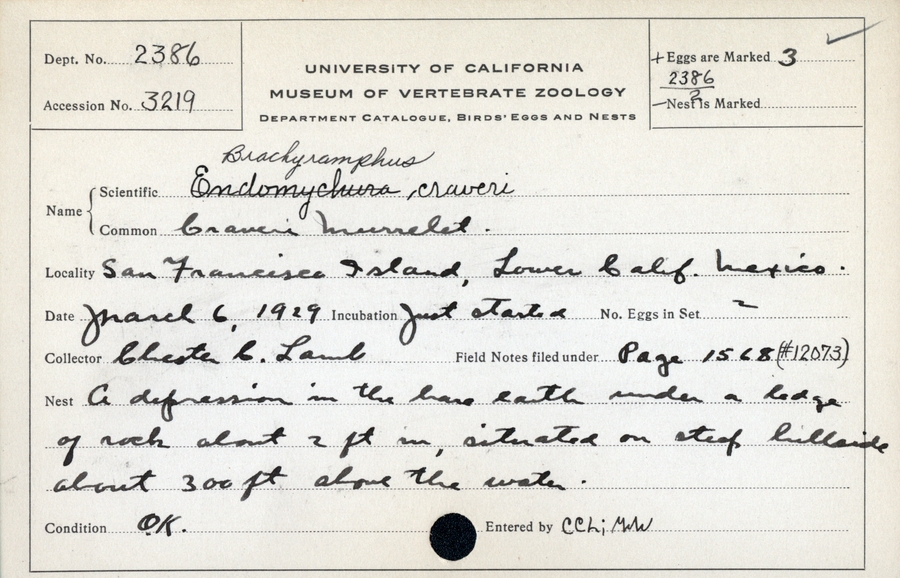 Dept. No. 2386
Accession No. 3219
UNIVERSITY OF CALIFORNIA
MUSEUM OF VERTEBRATE ZOOLOGY
DEPARTMENT CATALOGUE, BIRDS' EGGS AND NESTS
+ Eggs are Marked 3
2386
2
- Nest is Marked
Brachyramphus
Name { Scientific Endomychura craveri
Common Craveri Murrelet.
Locality San Francisco Island, Lower Calif. Mexico.
Date March 6, 1929 Incubation Just started No. Eggs in Set 2
Collector Chester C. Lamb Field Notes filed under Page 1568 (#12073)
Nest A depression in the bare earth under a ledge
of rock about 2 ft in, situated on steep hillside
about 300 ft above the water.
Condition OK. Entered by CCL;